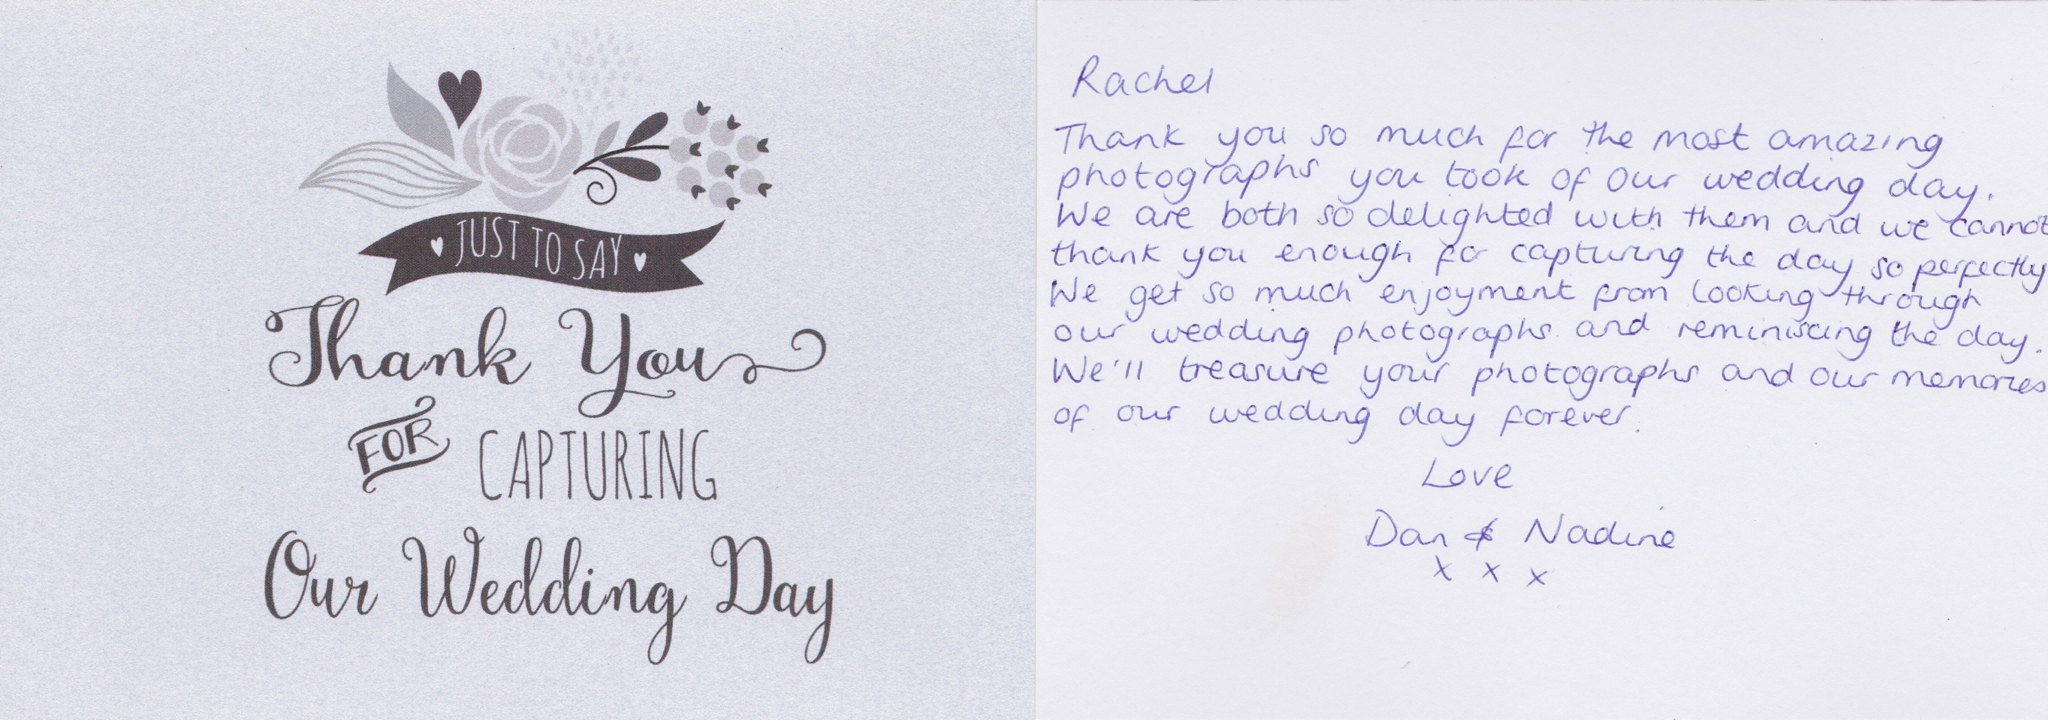 JUST TO SAY
Thank You
FOR CAPTURING
Our Wedding Day
Rachel
Thank you so much for the most amazing
photographs you took of our wedding day.
We are both so delighted with them and we cannot
thank you enough for capturing the day so perfectly
We get so much enjoyment from looking through
our wedding photographs and reminiscing the day.
We'll treasure your photographs and our memories
of our wedding day forever.
Love
Dan & Nadine
x x x